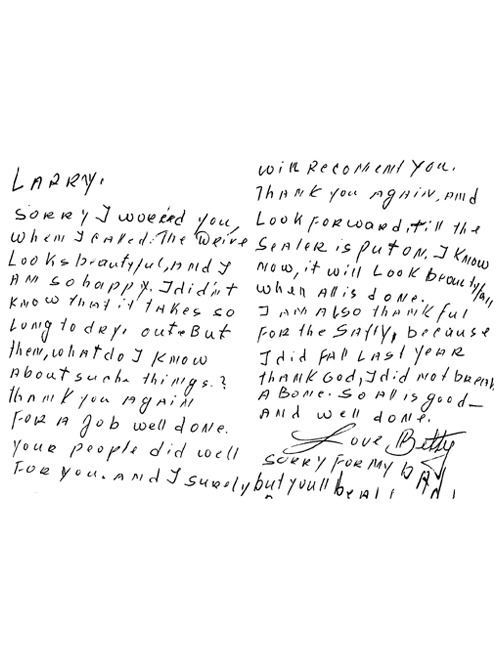 LARRY.
SORRY I WORRIED YOU,
WHEN I CALLED. THE DRIVE
LOOKS beautyful, AND I
AM SO HAPPY. I didn't
KNOW THAT it TAKES SO
LONG TO dry. OUT. But
then, what do I KNOW
About such things.?
thANK you AGAIN
FOR A Job well done.
your people did well
FOR YOU. AND I surely
will Recoment You.
THANK you AgAin, AND
LOOK FORWARD, till the
SEALER is put on. I KNOW
NOW, it will LOOK beautyfull
when All is done.
I AM Also thANKful
FOR the SAfty, because
I did FAll LAST YEAR
thANK GOD, I did not break
A Bone. So All is good—
AND well done.
Love, Betty
SORRY FOR MY
but youll